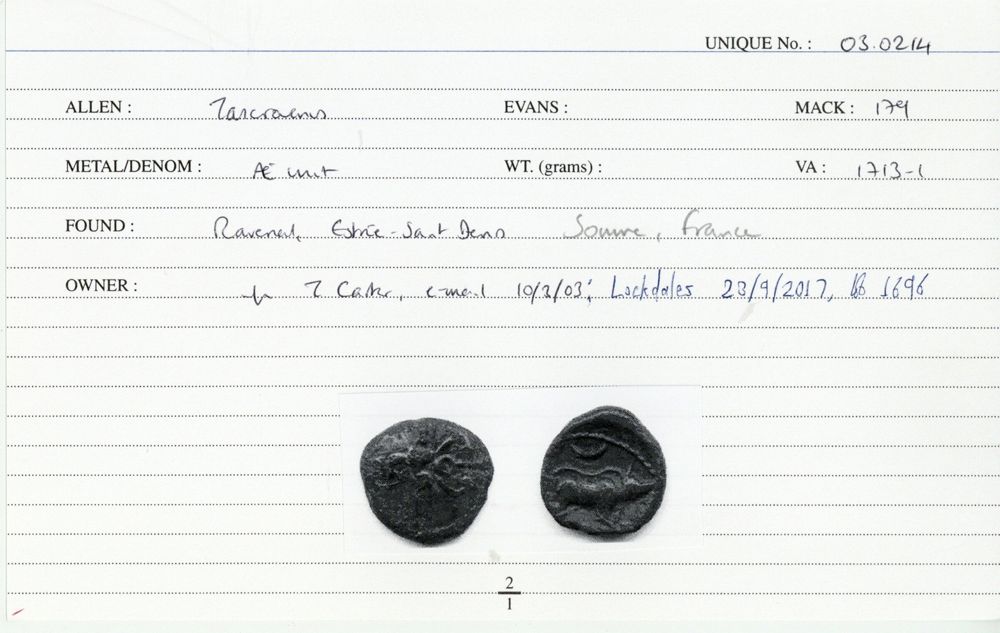 UNIQUE No. : 03.0214
ALLEN : Tasciovanus EVANS : MACK : 179
METAL/DENOM : Æ unit WT. (grams) : VA : 1713-1
FOUND : Ravenel, Estrée-Saint Denis Somme, France
OWNER : T Carter, e-mail 10/3/03; Lockdales 23/9/2017, 1696
2
1